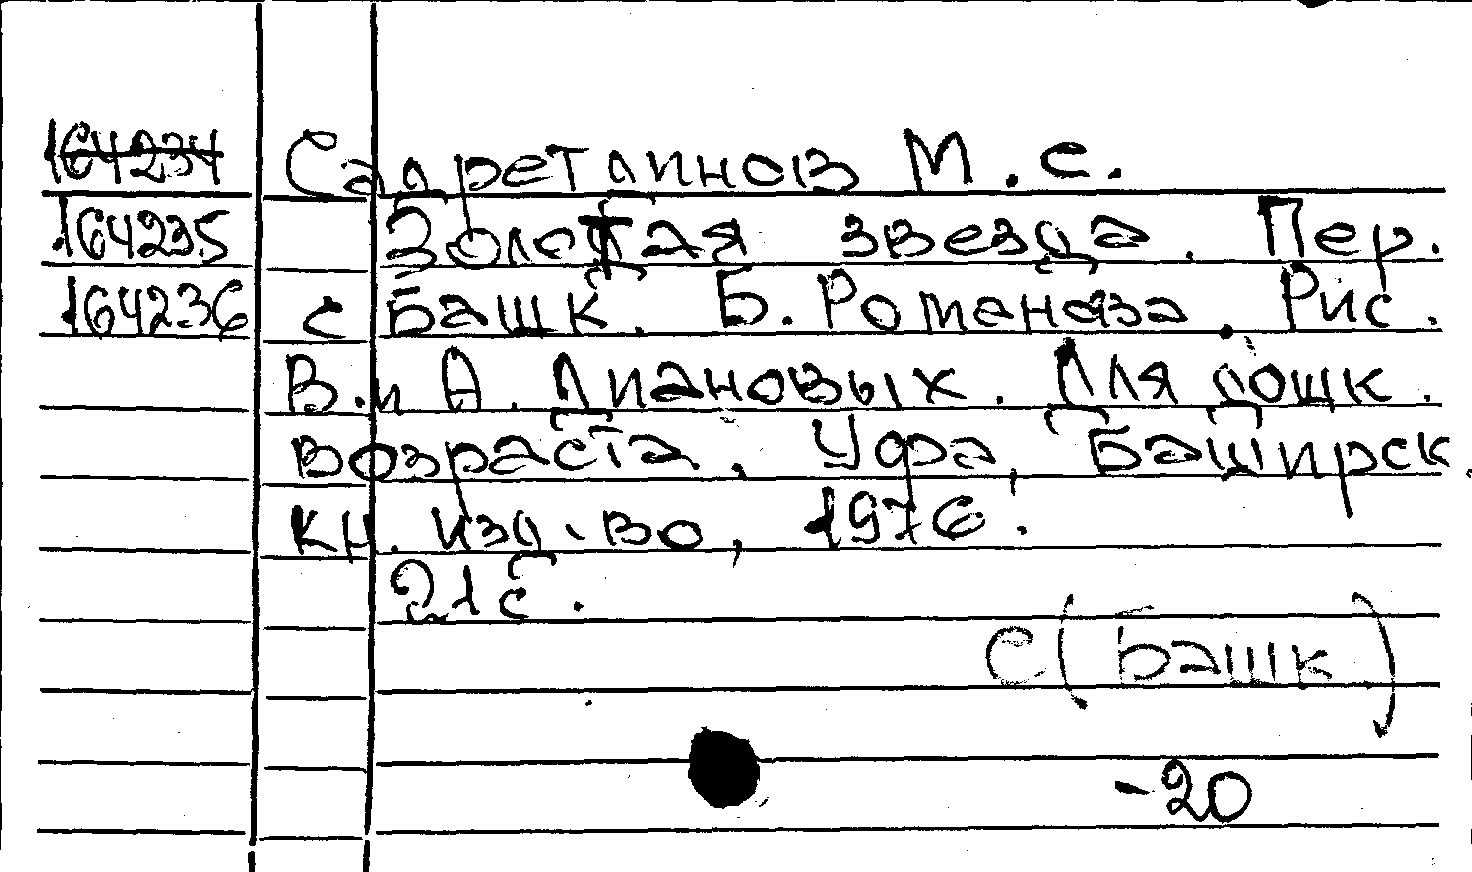 164234 Садретдинов М. С.
164235 Золотая звезда. Пер.
164236 с Башк. Б. Романова. Рис.
В. и А. Диановых. Для дошк.
возраста. Уфа, Башкирск
кн. изд-во, 1976.
21с.
С(Башк)
-20